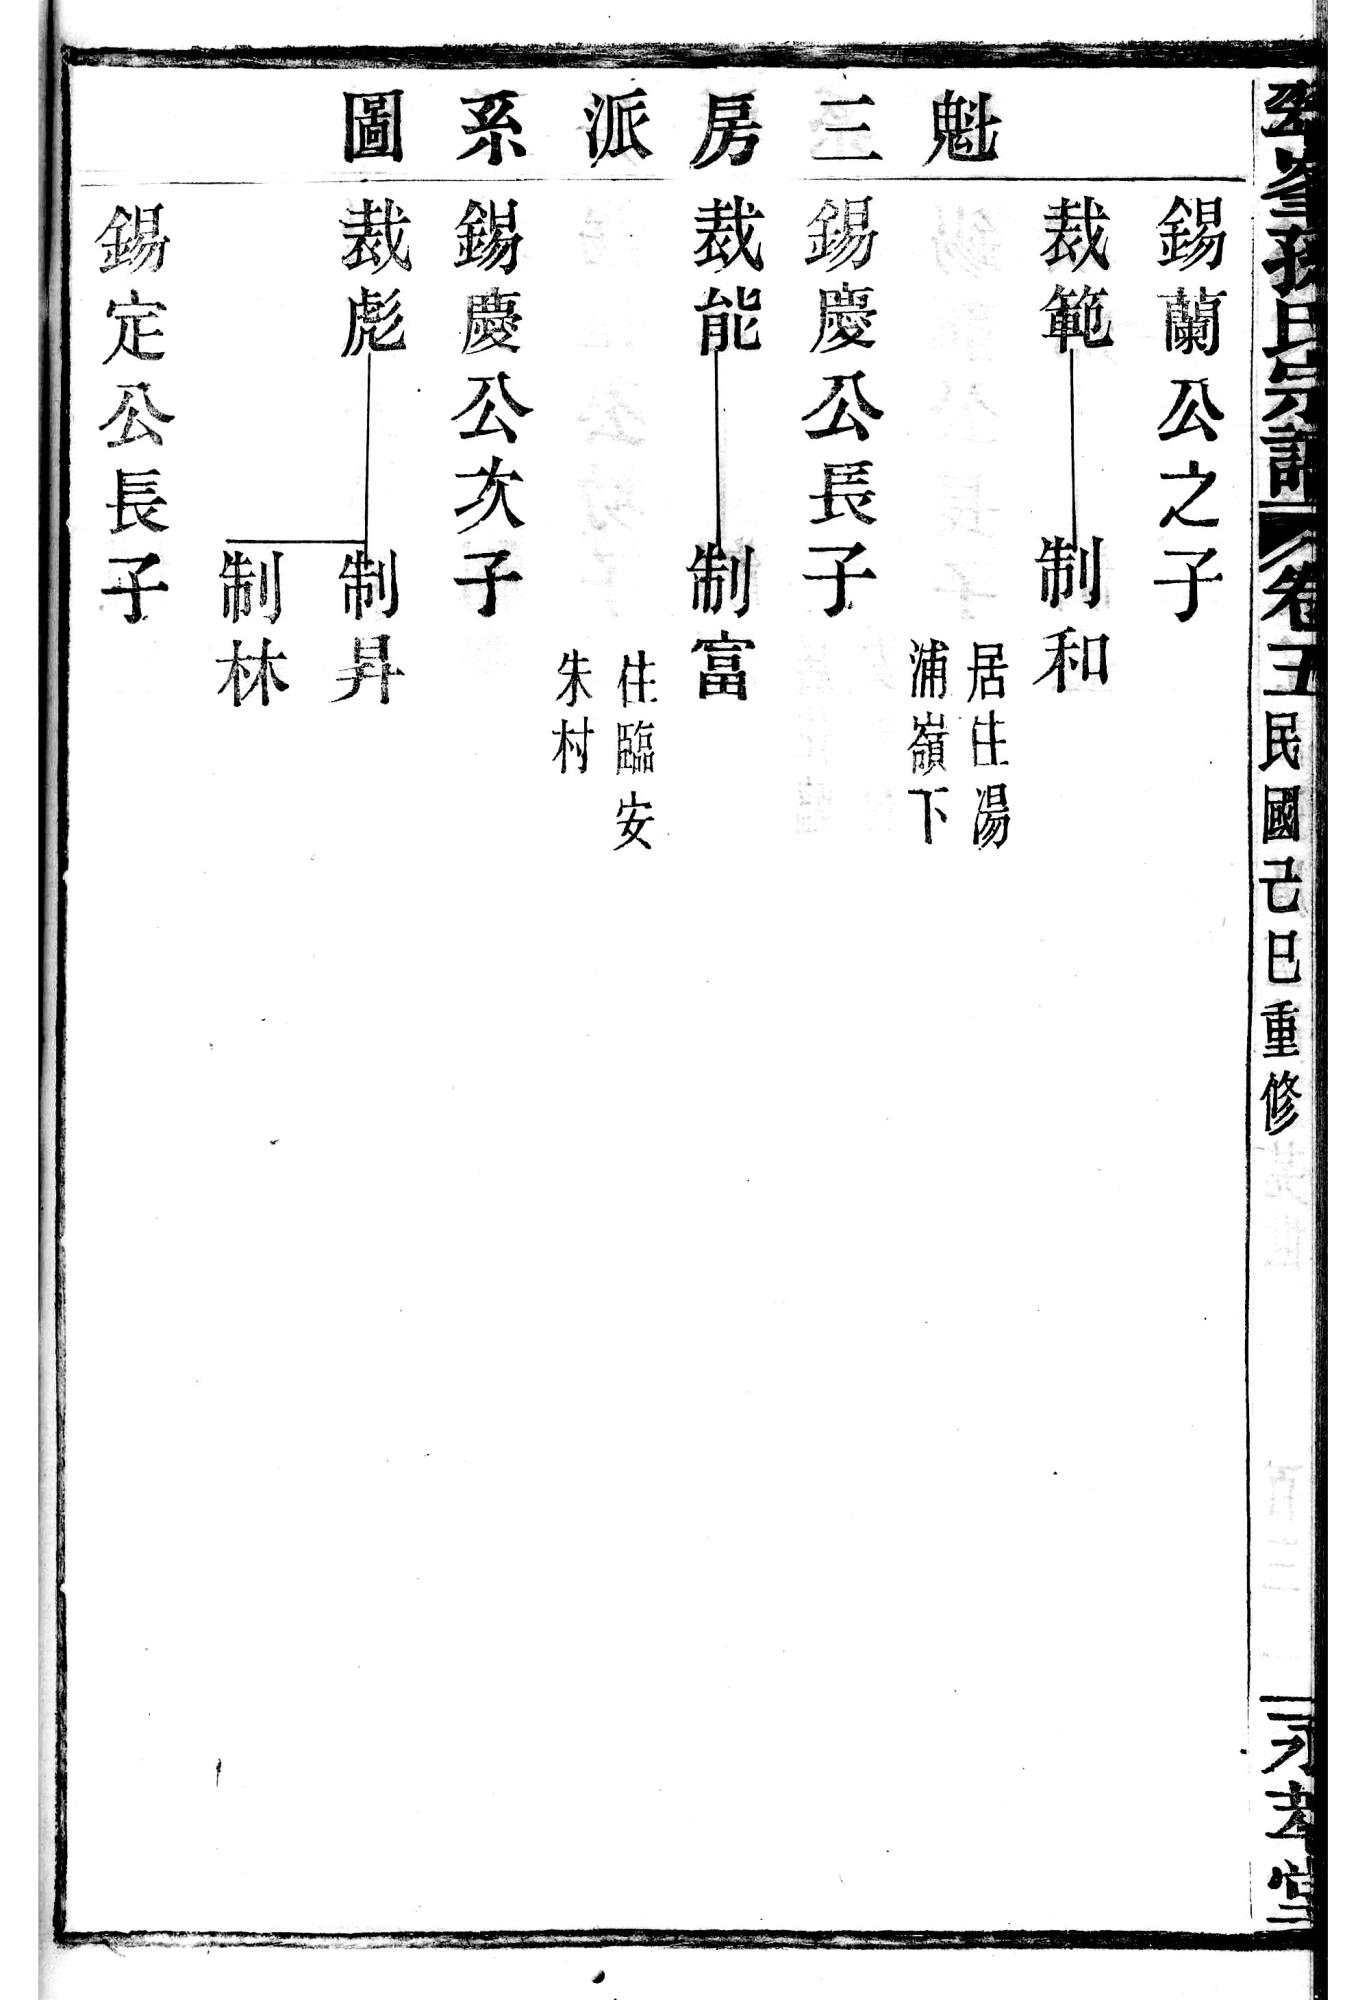 孫氏宗譜 卷五 民國己巳重修
魁三房派系圖
錫蘭公之子
裁範 制和
居住湯
浦嶺下
錫慶公長子
裁能 制富
住臨安
朱村
錫慶公次子
裁彪 制昇
制林
錫定公長子
堂